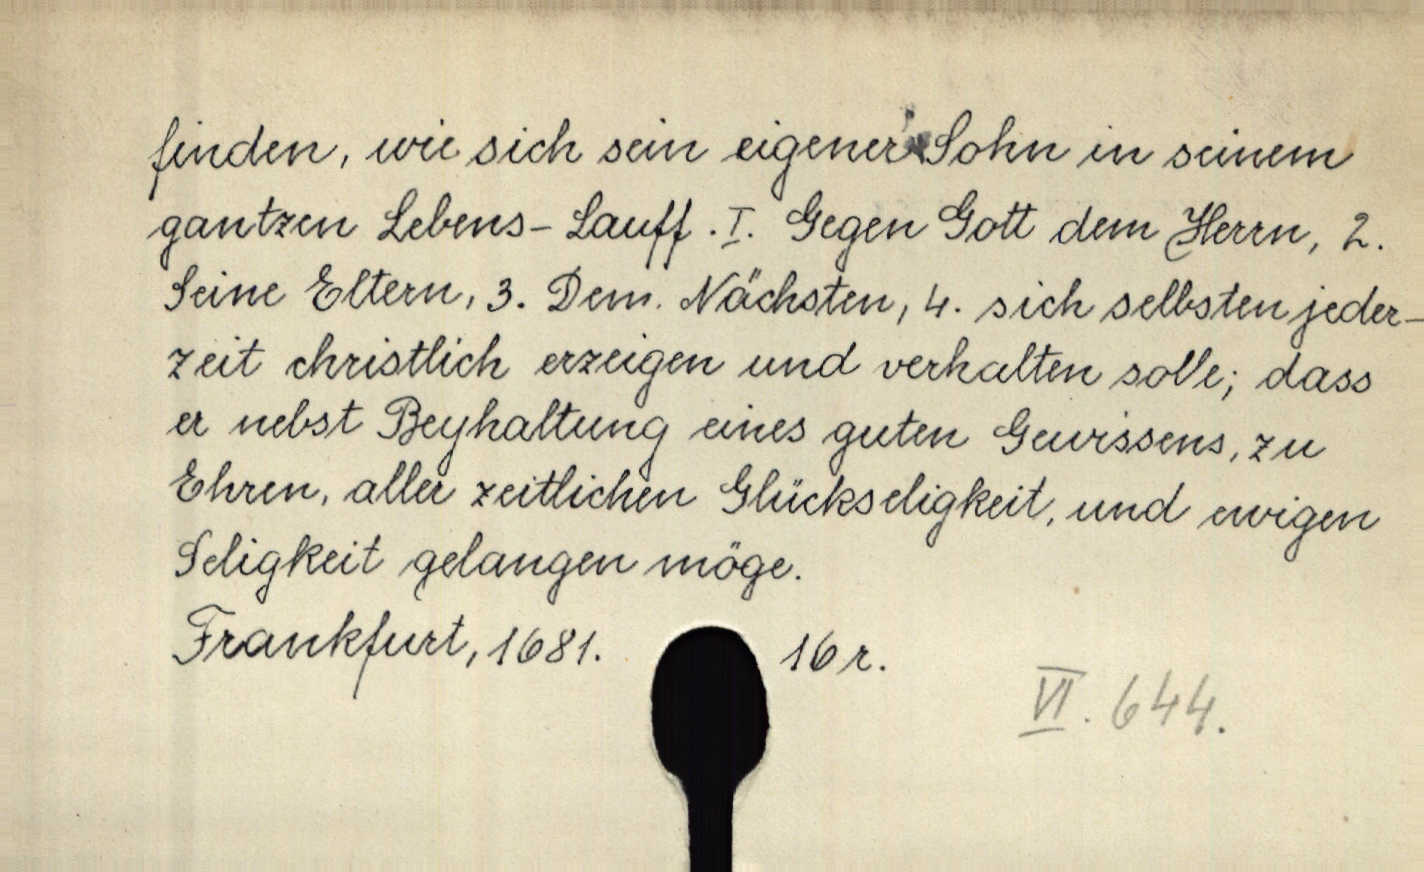 finden, wie sich sein eigener Sohn in seinem
gantzen Lebens-Lauff. I. Gegen Gott dem Herrn, 2.
Seine Eltern, 3. Dem. Nächsten, 4. sich selbsten jeder-
zeit christlich erzeigen und verhalten solle; dass
er nebst Beyhaltung eines guten Gewissens, zu
Ehren, aller zeitlichen Glückseligkeit, und ewigen
Seligkeit gelangen möge.
Frankfurt, 1681. 16 r.
VI. 644.